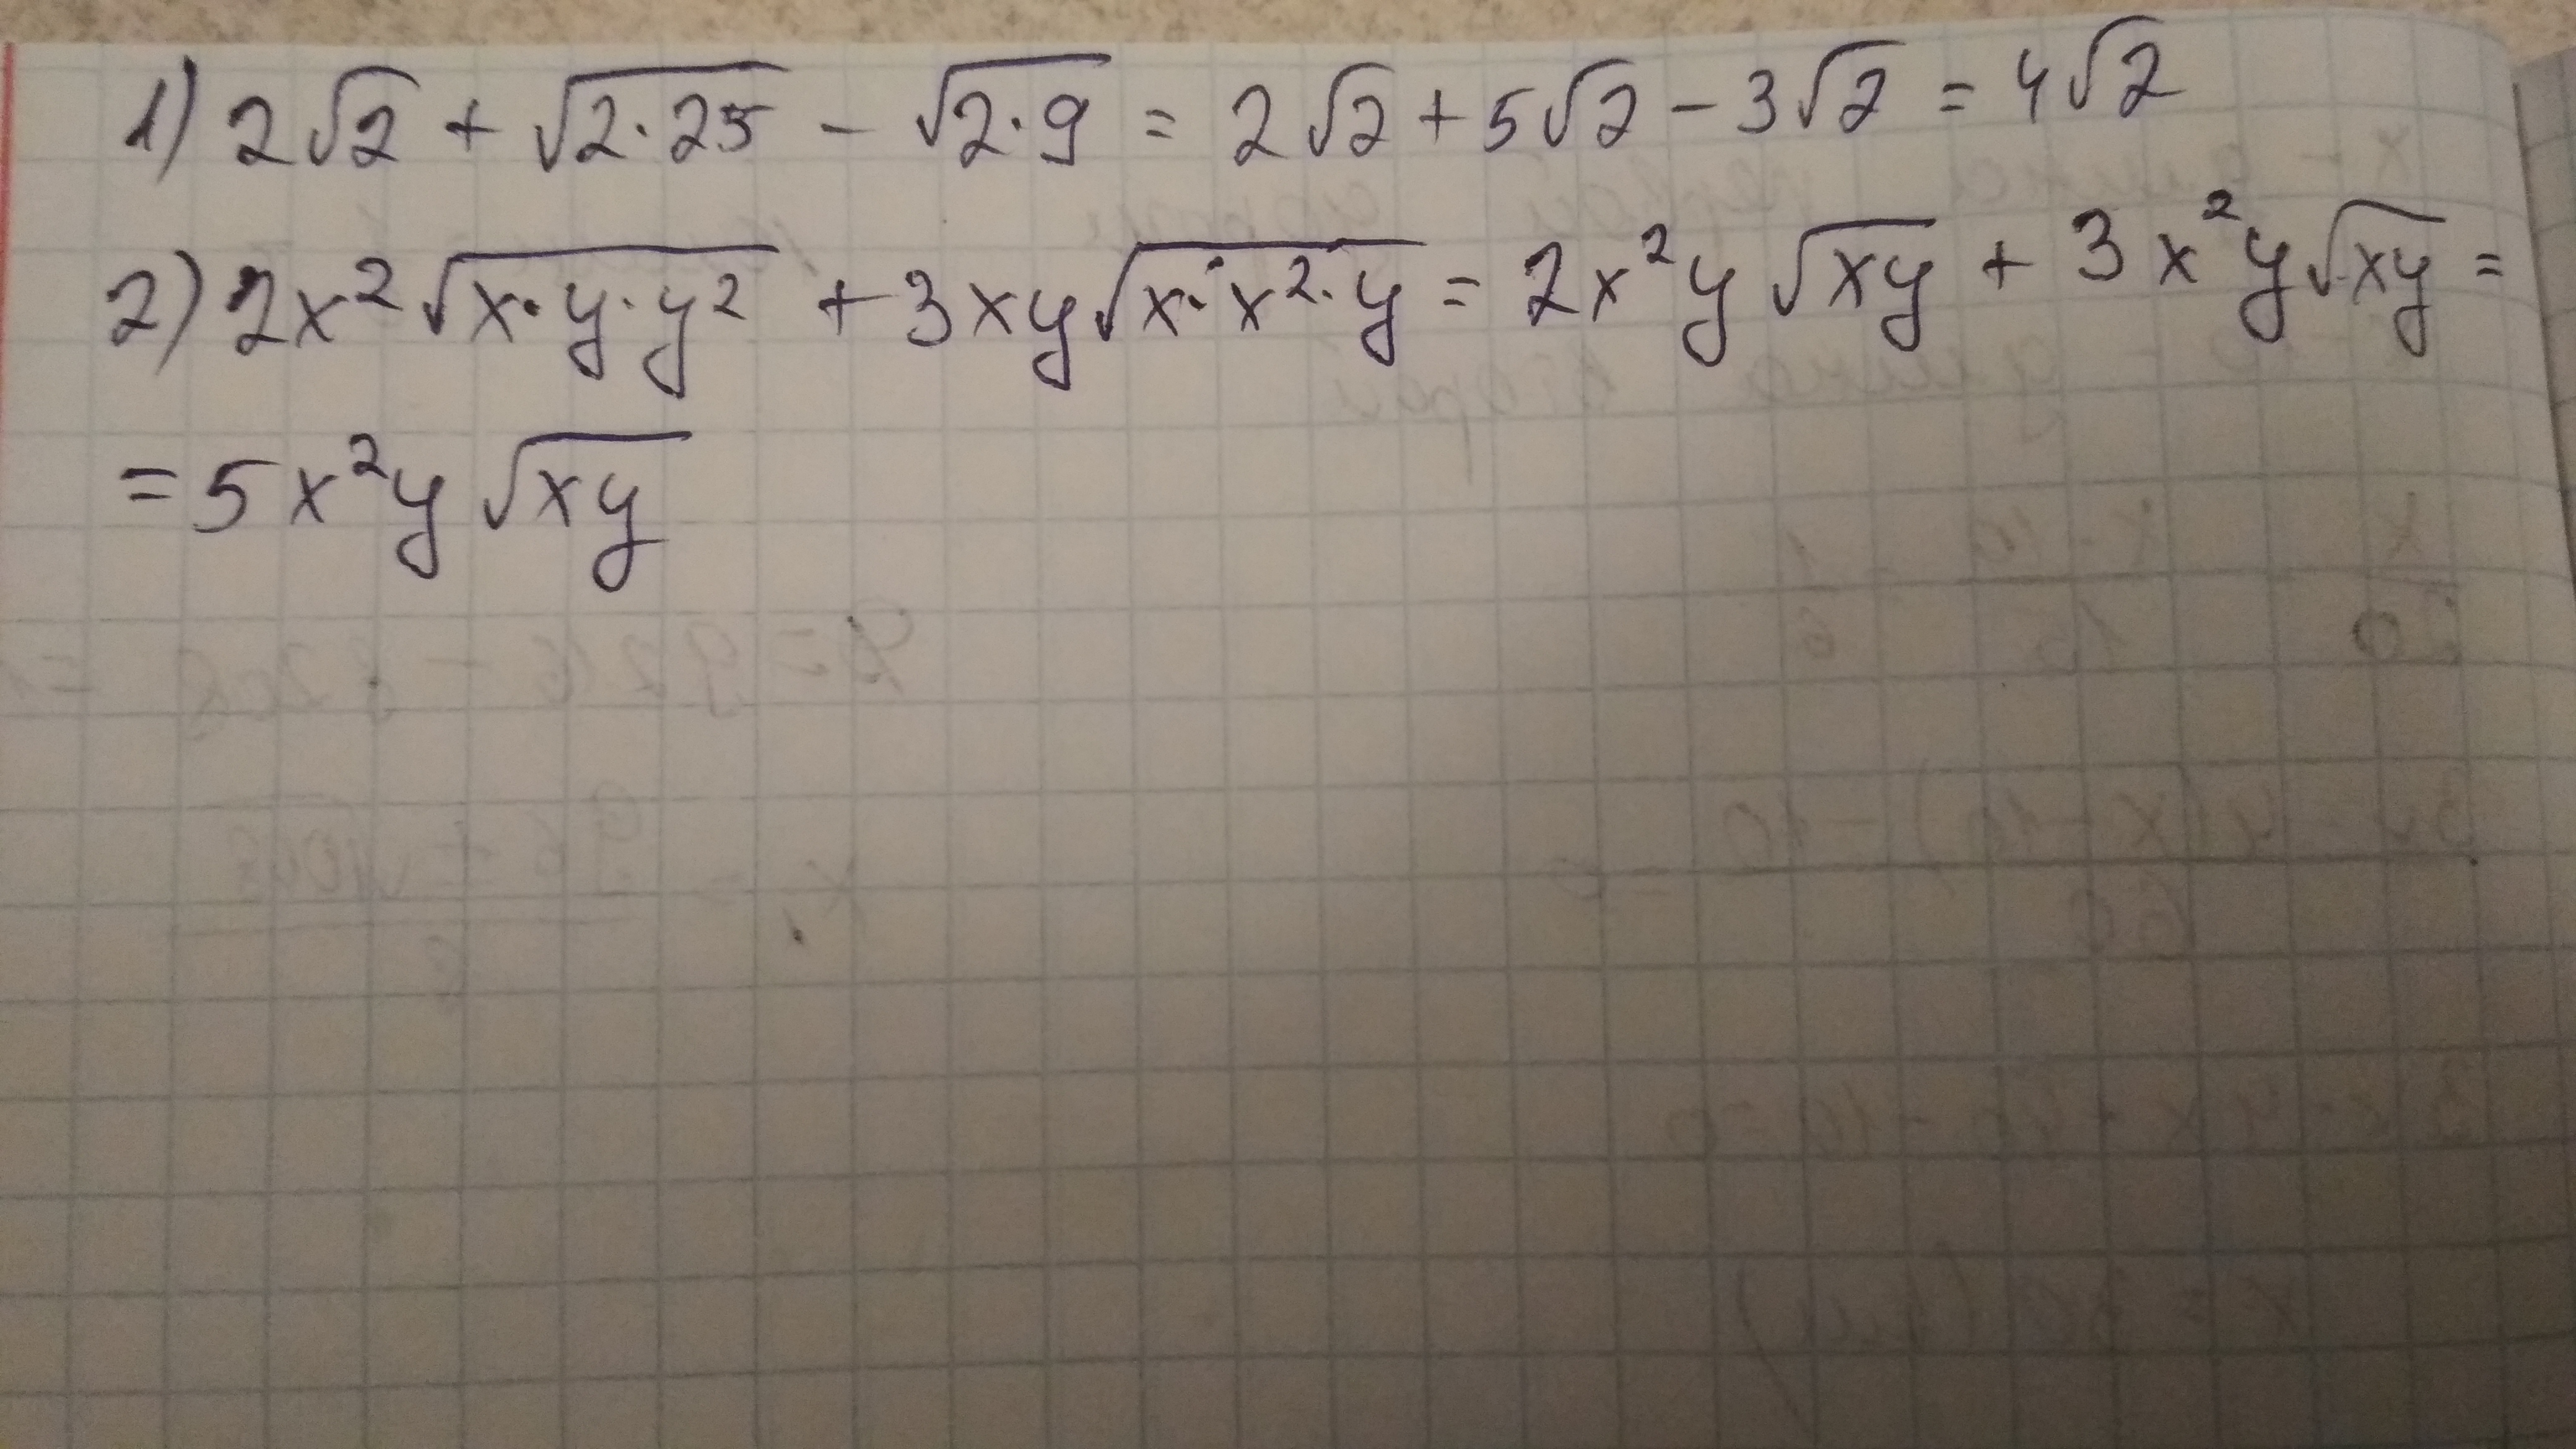 1) 2√2 + √(2·25) - √(2·9) = 2√2 + 5√2 - 3√2 = 4√2
2) 2x²√(x·y·y²) + 3xy√(x·x²·y) = 2x²y√(xy) + 3x²y√(xy) =
= 5x²y√(xy)